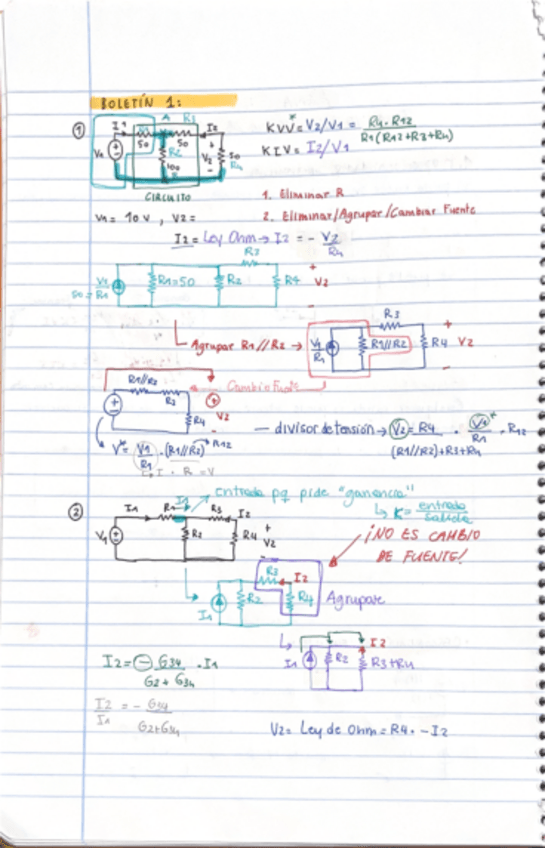 BOLETÍN 1:
① I1 A R3 I2
V1 50 50 R2 100 V2 50 R4
CIRCUITO
KVV* = V2/V1 = R4 · R12 / R1(R12+R3+R4)
KIV = I2/V1
1. Eliminar R
2. Eliminar/Agrupar/Cambiar Fuente
V1 = 10 V , V2 =
I2 = Ley Ohm → I2 = - V2/R4
V1/R1 R1=50 R2 R3 R4 + V2 -
Agrupar R1//R2 →
V1/R1 R1//R2 R3 R4 + V2 -
Cambio Fuente
R1//R2 R3 R4 + V2 -
V* = V1/R1 · (R1//R2) R12
I · R = V
— divisor de tensión → V2 = R4 / (R1//R2)+R3+R4 · V1*/R1 · R12
entrada pq pide "ganancia"
↳ K = entrada/salida
② I1 R1 I1 R3 I2
V1 R2 R4 + V2 -
¡NO ES CAMBIO
DE FUENTE!
I1 R2 R3 I2 R4 Agrupar
I1 R2 I2 R3+R4
I2 = - G34 / G2+G34 · I1
I2/I1 = - G34 / G2+G34
V2 = Ley de Ohm = R4 · -I2